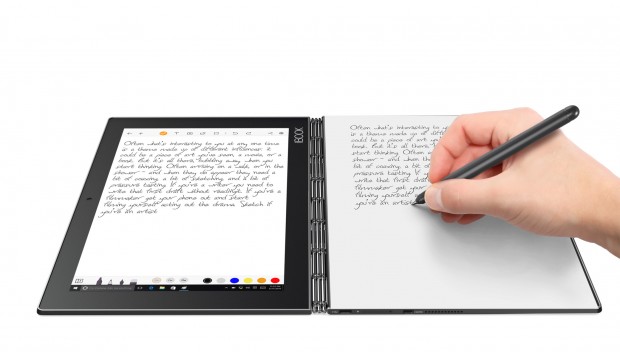 Often what's interesting to you at any one time
is a theme made up of different influences. It
could be a piece of art you've seen, a media or a
book. But it's all there, bubbling away when you
start thinking. Often arriving on a walk, or in the
shower - and when they do appear they need a
bit of coaxing, a bit of sketching and a bit of
pressure testing If you're a writer you need to
write that first draft without realising. If you're a
filmmaker get your phone out and start -
filming yourself acting out the drama. Sketch if
you're an artist
BOOK
Often what's interesting to you at
is a theme made up of different
could be a piece of art you've
book. But it's all there, bubbling
start thinking. Often
shower - and when they do
bit of coaxing, a bit
pressure testing If
write that first draft
filmmaker get your
filming yourself
you're an artist